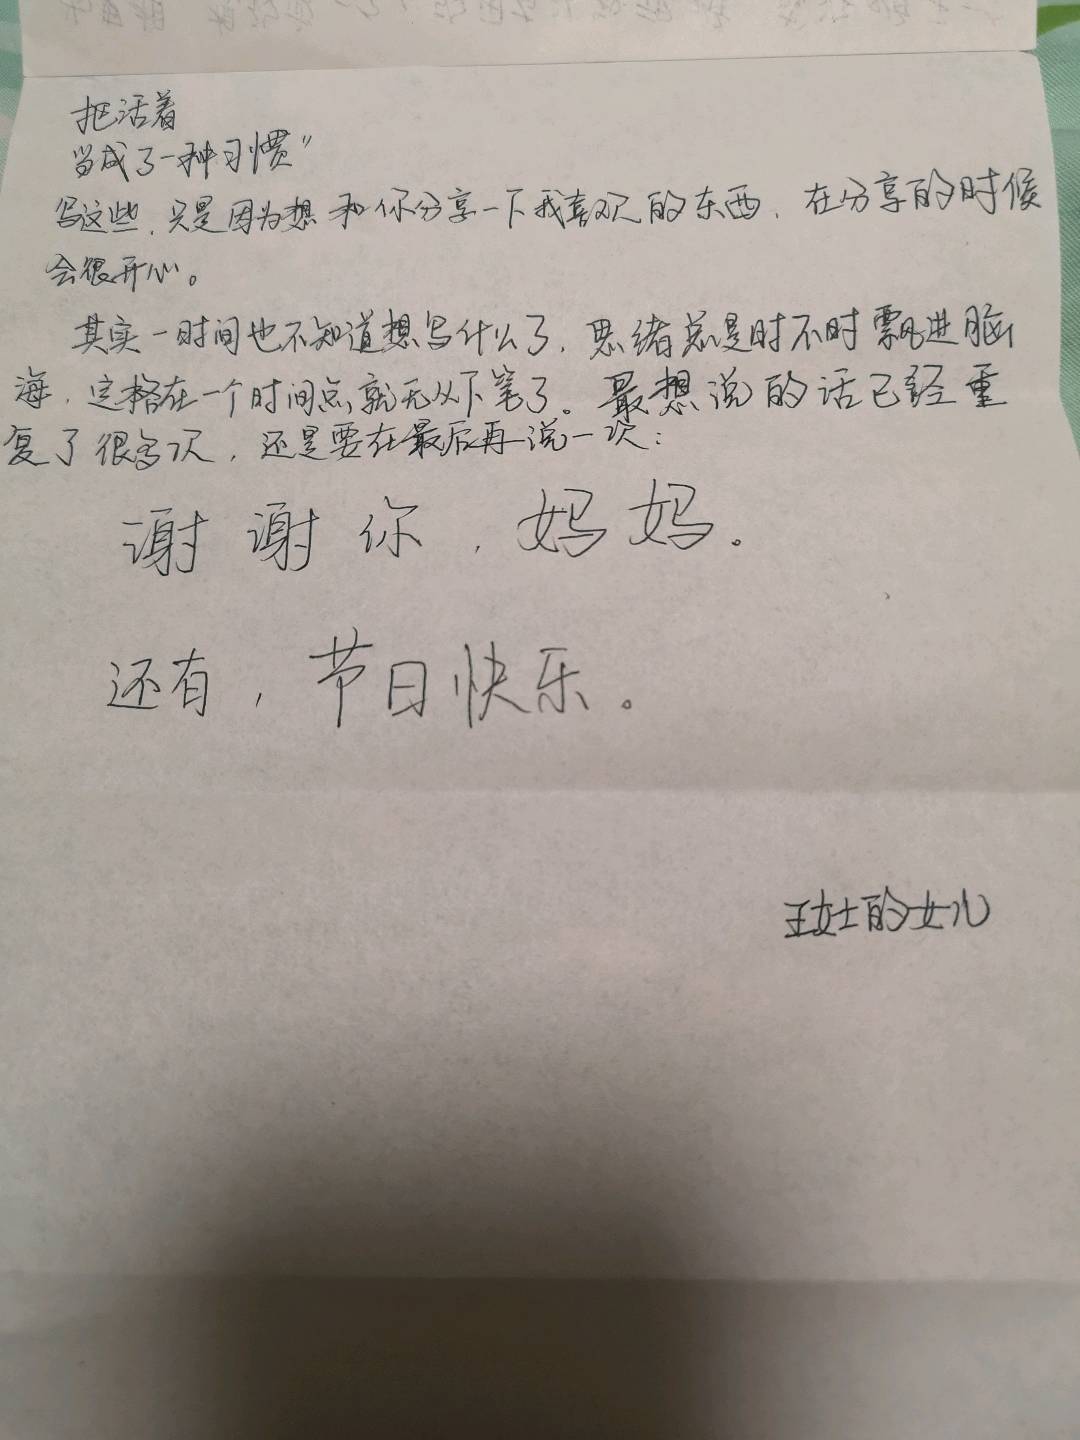 把活着
当成了一种习惯”
写这些，只是因为想和你分享一下我喜欢的东西，在分享的时候
会很开心。
其实一时间也不知道想写什么了，思绪总是时不时飘进脑
海，定格在一个时间点就无从下笔了。最想说的话已经重
复了很多次，还是要在最后再说一次：
谢谢你，妈妈。
还有，节日快乐。
王女士的女儿